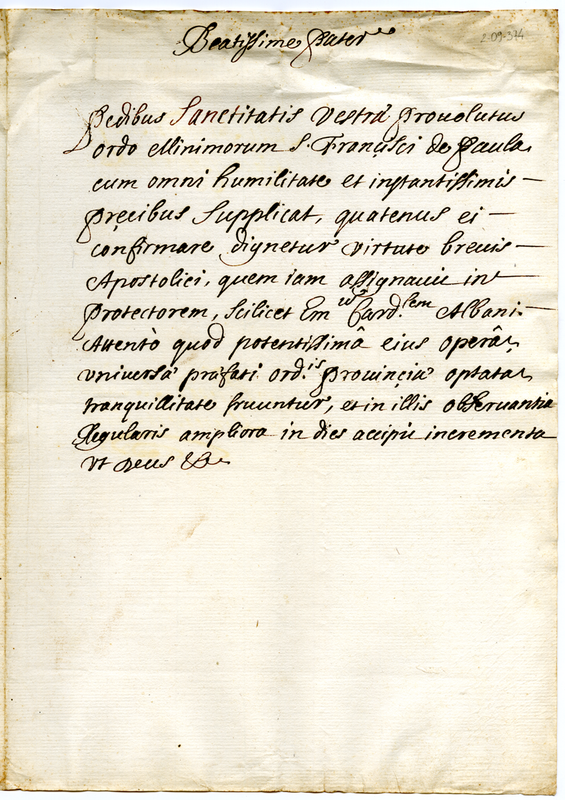 Beatissime Pater
2-09-374
Pedibus Sanctitatis Vestræ provolutus
ordo Minimorum S. Francisci de Paula
cum omni humilitate et instantissimis
precibus supplicat, quatenus ei
confirmare dignetur virtute brevis
Apostolici, quem iam assignavit in
Protectorem, scilicet Em.um Card.lem Albani.
Attentò quod potentissimâ eius operâ,
universæ præfati ord.is provinciæ optata
tranquillitate fruuntur, et in illis observantia
Regularis ampliora in dies accipit incrementa
Ut Deus &c